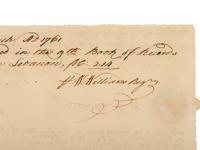 A D 1761
d in the 9th Book of Records
Lebanon, fol: 214
Wm Williams Regr